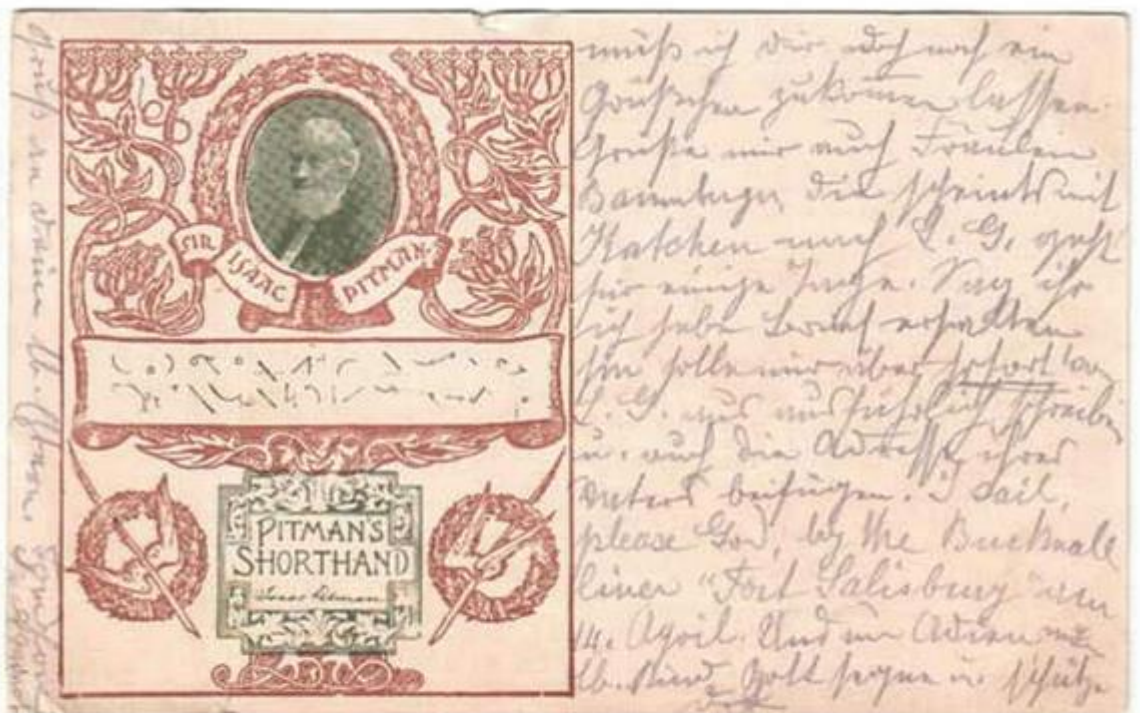 SIR ISAAC PITMAN.
PITMAN'S
SHORTHAND
Isaac Pitman
muß ich Dir doch noch ein
Grüßchen zukomen lassen.
Grüße mir auch Fräulein
die scheints mit
Kätchen nach L. G. geht
für einige Tage. Sag ihr
ich habe Brief erhalten
sie solle mir aber sofort von
L. G. aus ausführlich schreiben
u. auch die Adresse ihres
Vaters beifügen. I sail,
please God, by the Bucknall
liner "Fort Salisbury" am
14. April. Und nun Adieu mein
lb. Kind, Gott segne u. schütze
Dich
Gruß an deine lb.